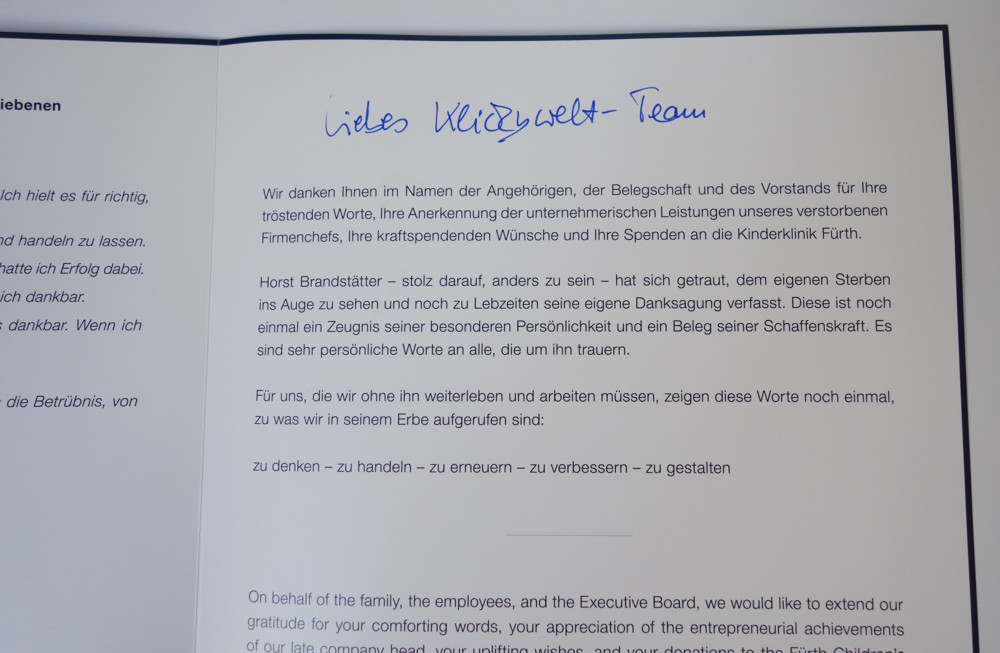 iebenen
Ich hielt es für richtig,
nd handeln zu lassen.
hatte ich Erfolg dabei.
ich dankbar.
s dankbar. Wenn ich
die Betrübnis, von
Liebes Klickywelt-Team
Wir danken Ihnen im Namen der Angehörigen, der Belegschaft und des Vorstands für Ihre
tröstenden Worte, Ihre Anerkennung der unternehmerischen Leistungen unseres verstorbenen
Firmenchefs, Ihre kraftspendenden Wünsche und Ihre Spenden an die Kinderklinik Fürth.
Horst Brandstätter – stolz darauf, anders zu sein – hat sich getraut, dem eigenen Sterben
ins Auge zu sehen und noch zu Lebzeiten seine eigene Danksagung verfasst. Diese ist noch
einmal ein Zeugnis seiner besonderen Persönlichkeit und ein Beleg seiner Schaffenskraft. Es
sind sehr persönliche Worte an alle, die um ihn trauern.
Für uns, die wir ohne ihn weiterleben und arbeiten müssen, zeigen diese Worte noch einmal,
zu was wir in seinem Erbe aufgerufen sind:
zu denken – zu handeln – zu erneuern – zu verbessern – zu gestalten
On behalf of the family, the employees, and the Executive Board, we would like to extend our
gratitude for your comforting words, your appreciation of the entrepreneurial achievements
of our late company head, your uplifting wishes, and your donations to the Fürth Children's